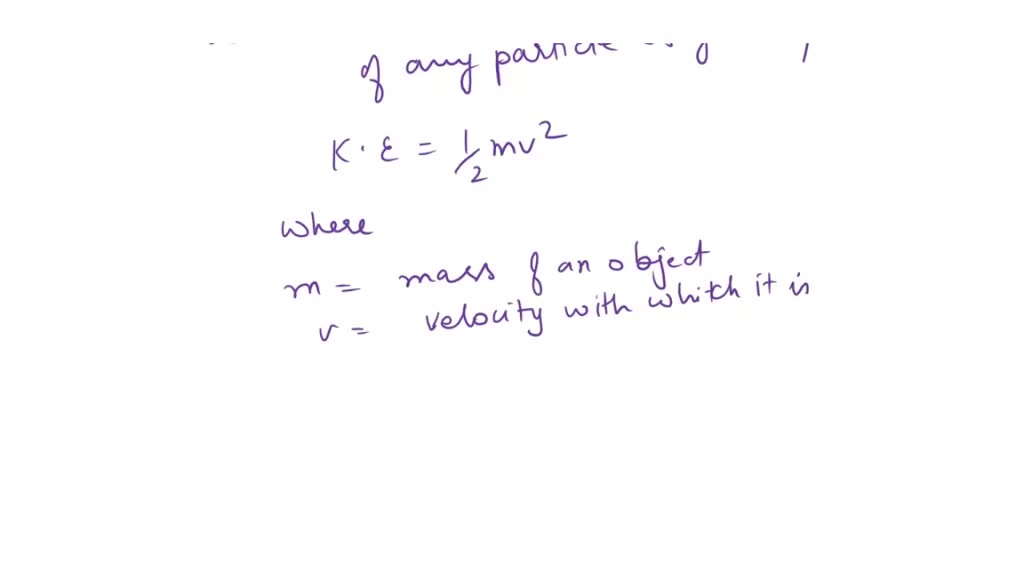 of any particle
K·E = 1/2 mv²
where
m = mass of an object
v = velocity with whitch it is